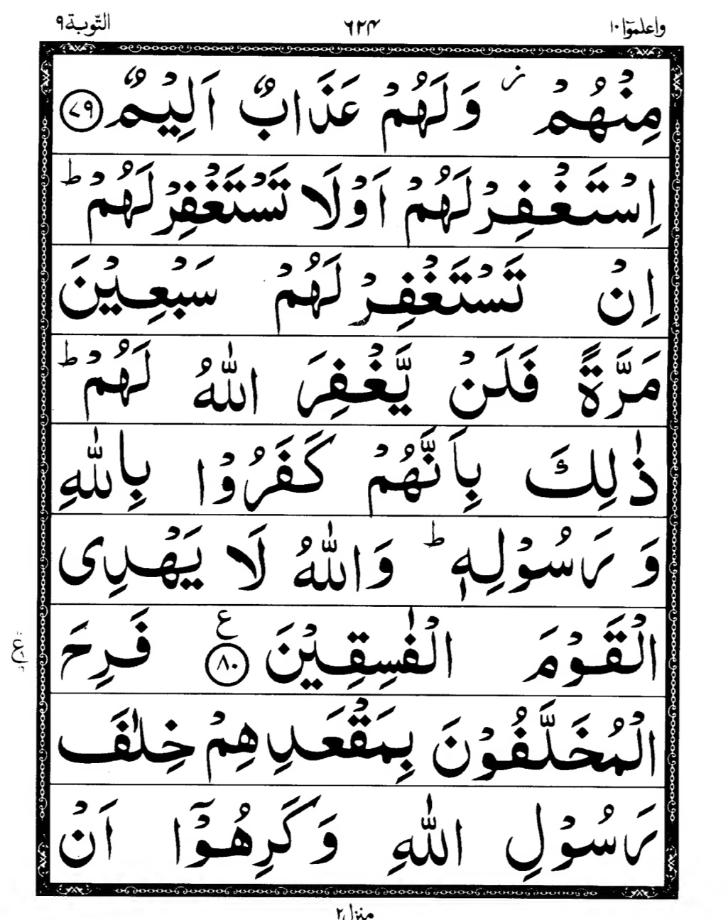 واعلموا ١٠ ٦٢٤ التوبة ٩
مِنْهُمْ ز وَلَهُمْ عَذَابٌ اَلِيْمٌ ﴿۷۹﴾
اِسْتَغْفِرْ لَهُمْ اَوْلَا تَسْتَغْفِرْ لَهُمْ ؕ
اِنْ تَسْتَغْفِرْ لَهُمْ سَبْعِيْنَ
مَرَّةً فَلَنْ يَّغْفِرَ اللّٰهُ لَهُمْ ؕ
ذٰلِكَ بِاَنَّهُمْ كَفَرُوْا بِاللّٰهِ
وَ رَسُوْلِهٖ ؕ وَاللّٰهُ لَا يَهْدِى
الْقَوْمَ الْفٰسِقِيْنَ ﴿۸۰﴾ ع فَرِحَ
الْمُخَلَّفُوْنَ بِمَقْعَدِهِمْ خِلٰفَ
رَسُوْلِ اللّٰهِ وَكَرِهُوْۤا اَنْ
منزل ٢